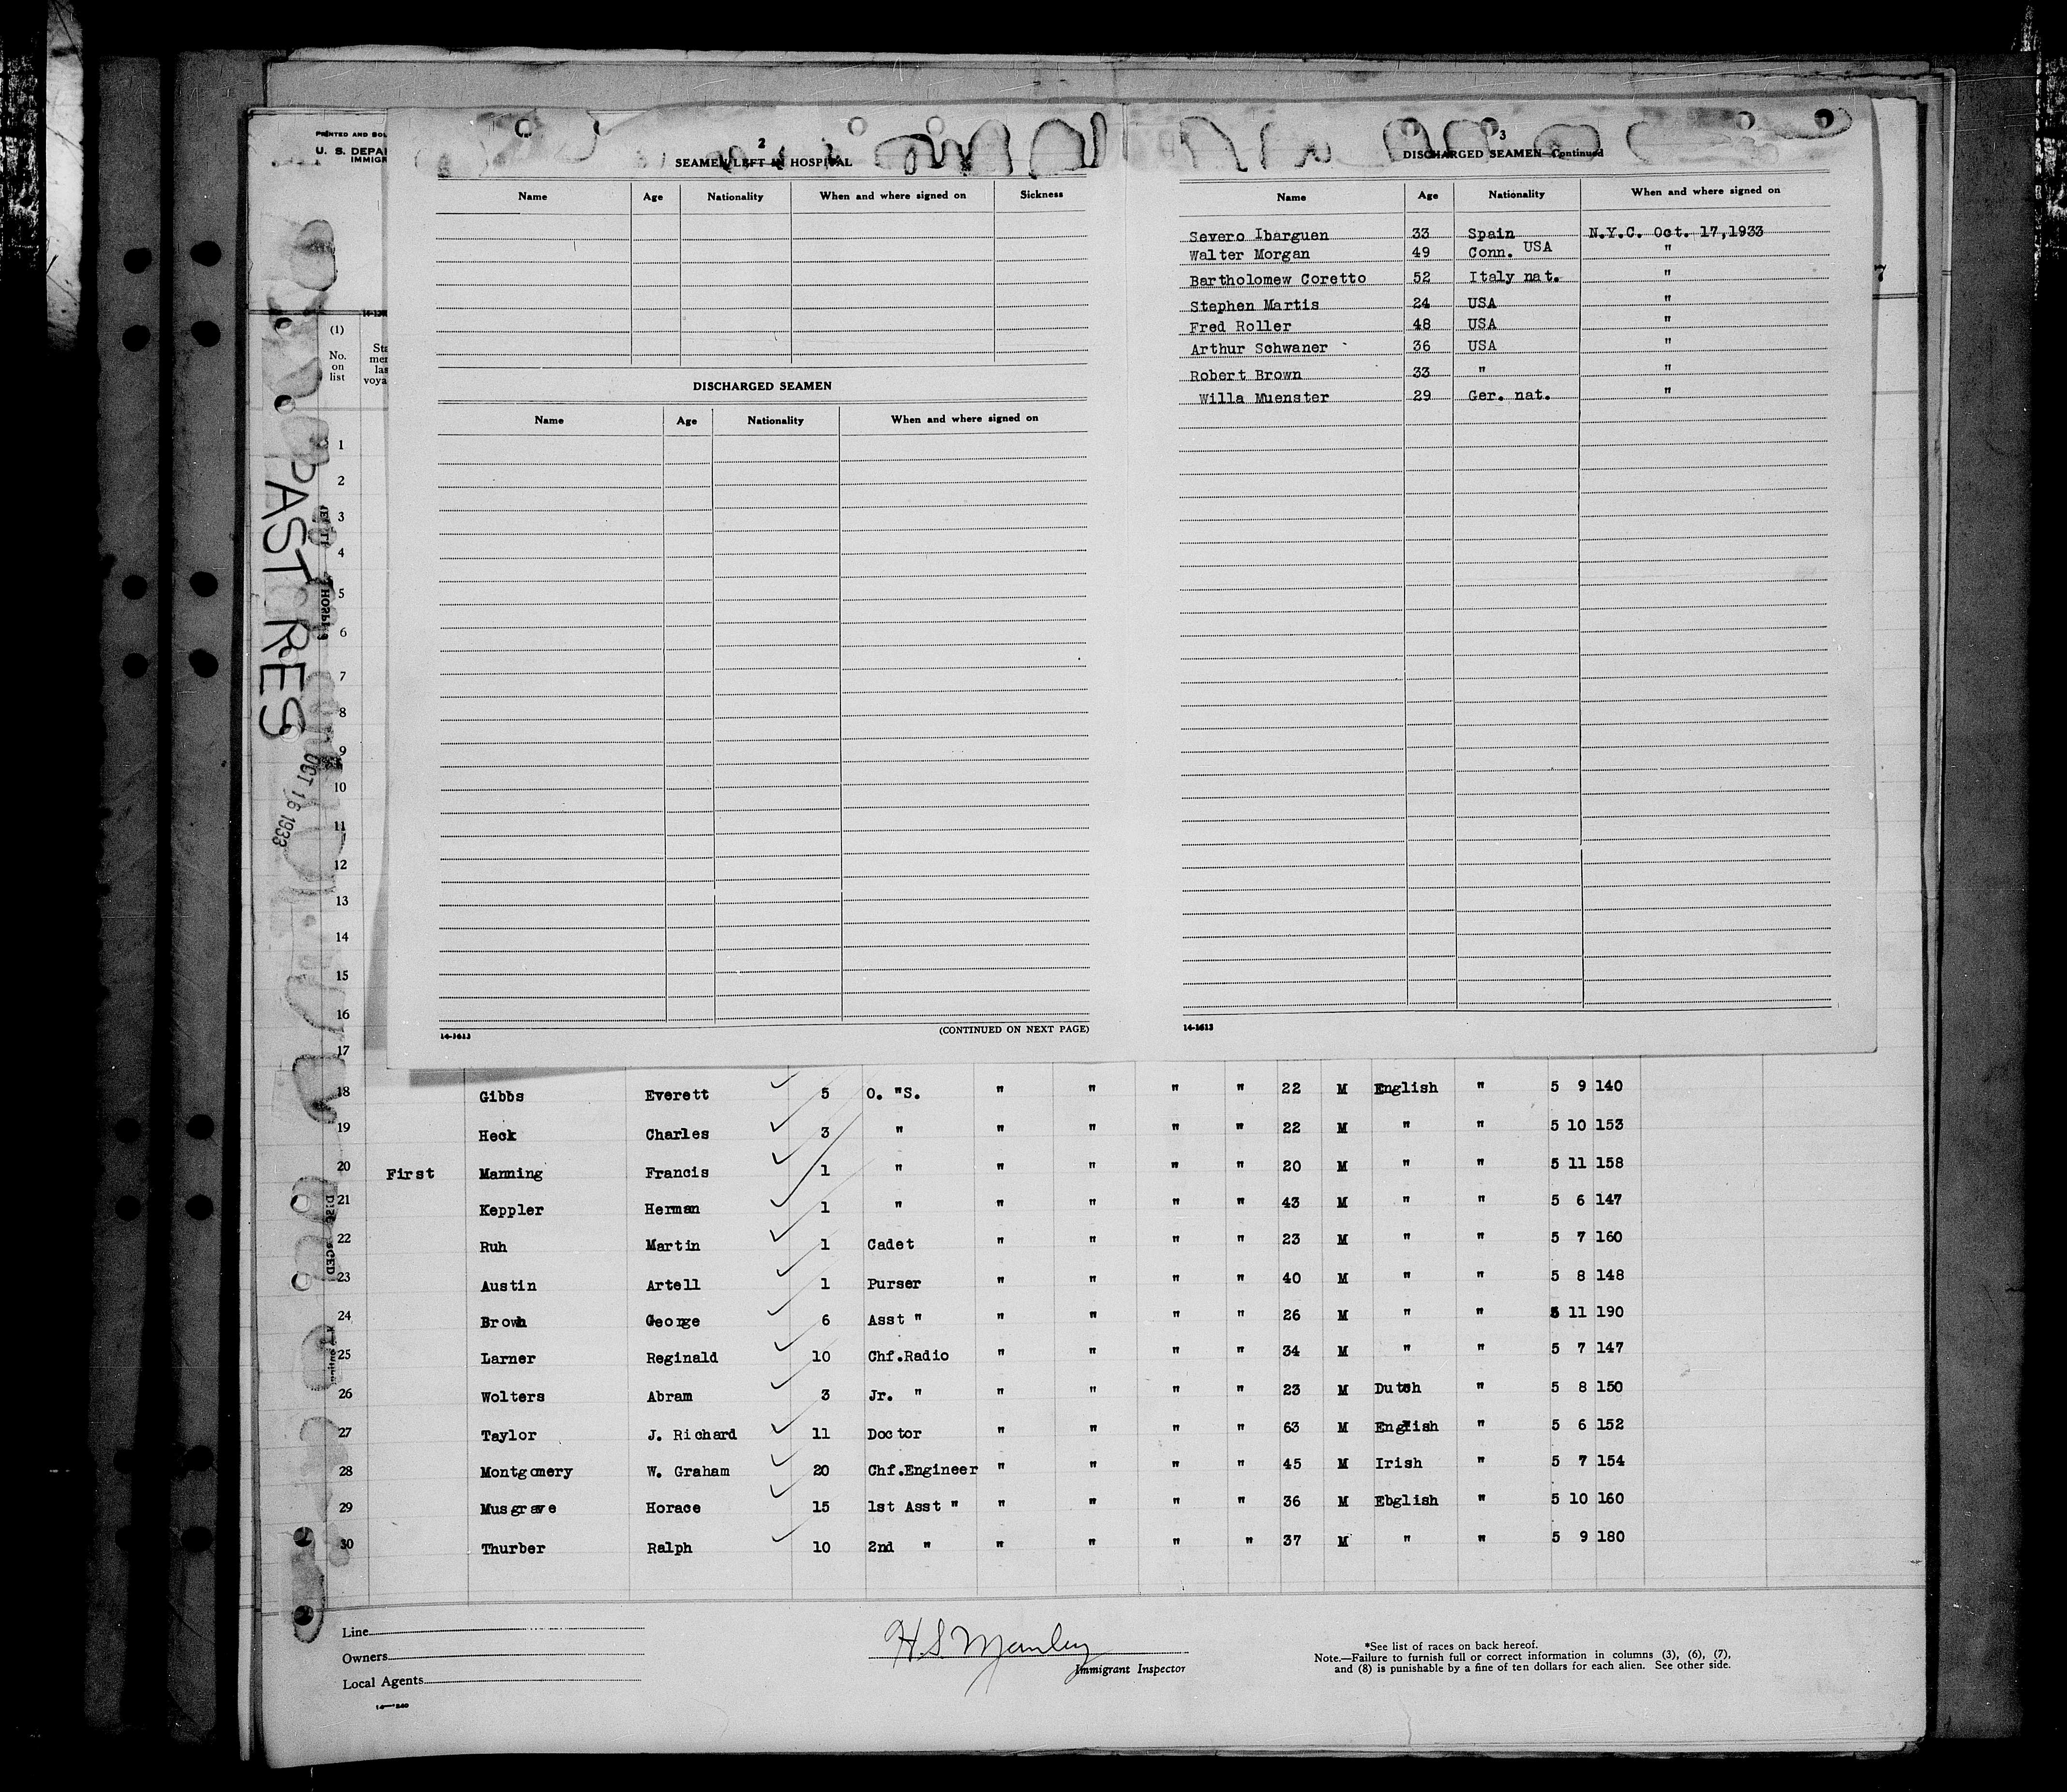 PRINTED AND BOU
U. S. DEPAR
IMMIGR
2
SEAMEN LEFT IN HOSPITAL
Name Age Nationality When and where signed on Sickness
DISCHARGED SEAMEN
Name Age Nationality When and where signed on
14-1613
(CONTINUED ON NEXT PAGE)
3
DISCHARGED SEAMEN—Continued
Name Age Nationality When and where signed on
Severo Ibarguen 33 Spain N.Y.C. Oct. 17,1933
Walter Morgan 49 Conn. USA "
Bartholomew Coretto 52 Italy nat. "
Stephen Martis 24 USA "
Fred Roller 48 USA "
Arthur Schwaner 36 USA "
Robert Brown 33 " "
Willa Muenster 29 Ger. nat. "
14-1613
7
(1)
No.
on
list
PASTORES
OCT 16 1933
1
2
3
4
5
6
7
8
9
10
11
12
13
14
15
16
17
18 Gibbs Everett 5 O. "S. " " " " 22 M English " 5 9 140
19 Heck Charles 3 " " " " " 22 M " " 5 10 153
20 First Manning Francis 1 " " " " " 20 M " " 5 11 158
21 Keppler Herman 1 " " " " " 43 M " " 5 6 147
22 Ruh Martin 1 Cadet " " " " 23 M " " 5 7 160
23 Austin Artell 1 Purser " " " " 40 M " " 5 8 148
24 Brown George 6 Asst " " " " " 26 M " " 5 11 190
25 Larner Reginald 10 Chf.Radio " " " " 34 M " " 5 7 147
26 Wolters Abram 3 Jr. " " " " " 23 M Dutch " 5 8 150
27 Taylor J. Richard 11 Doctor " " " " 63 M English " 5 6 152
28 Montgomery W. Graham 20 Chf.Engineer " " " " 45 M Irish " 5 7 154
29 Musgrave Horace 15 1st Asst " " " " " 36 M Ebglish " 5 10 160
30 Thurber Ralph 10 2nd " " " " " 37 M " " 5 9 180
Line
Owners
Local Agents
H S Manley
Immigrant Inspector
*See list of races on back hereof.
Note.—Failure to furnish full or correct information in columns (3), (6), (7),
and (8) is punishable by a fine of ten dollars for each alien. See other side.